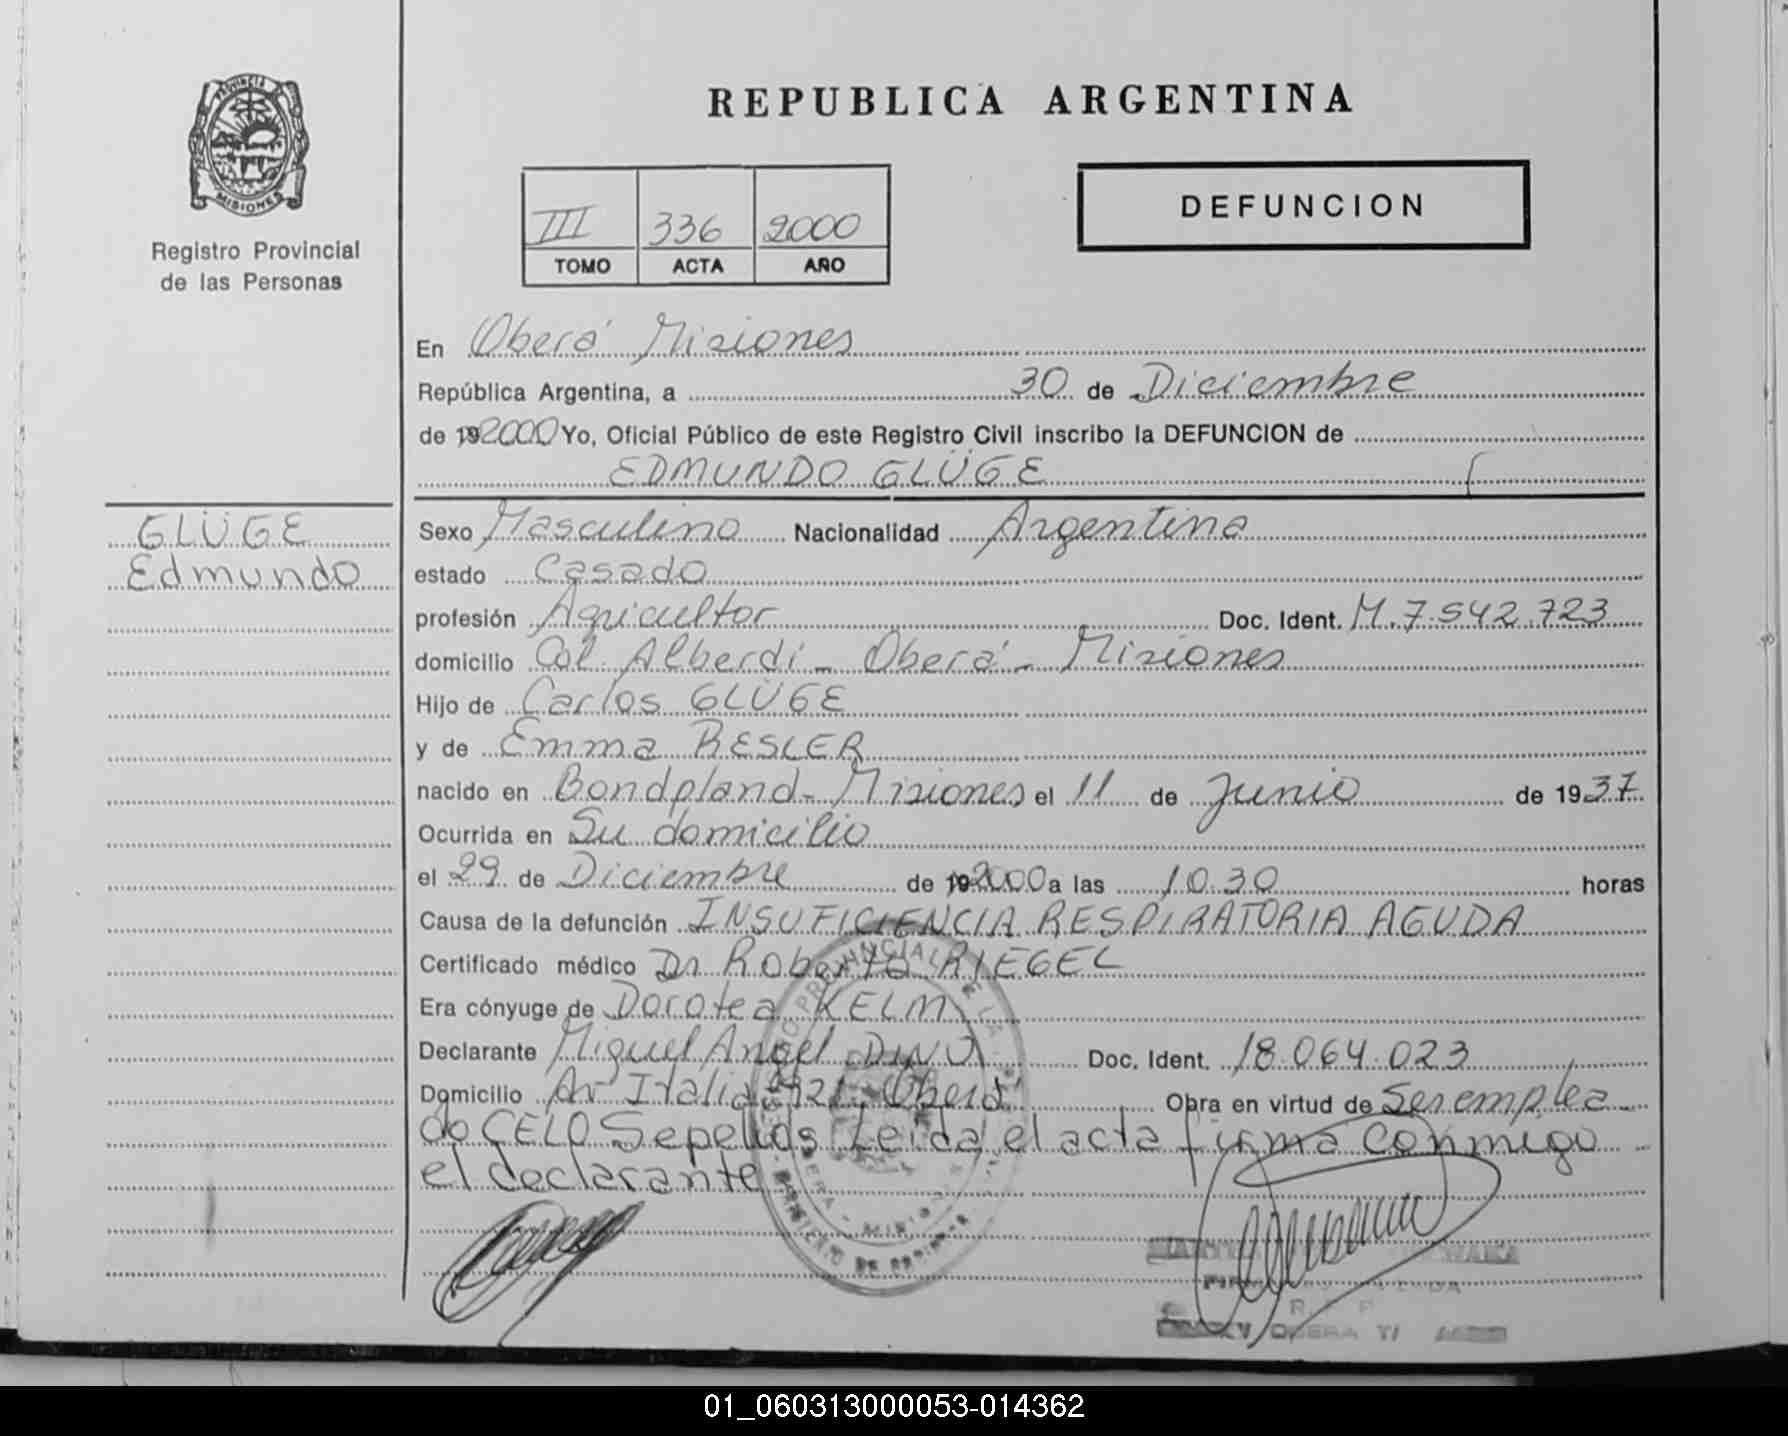 PROVINCIA
MISIONES
Registro Provincial
de las Personas
REPUBLICA ARGENTINA
III 336 2000
TOMO ACTA AÑO
DEFUNCION
En Oberá Misiones
República Argentina, a 30 de Diciembre
de 192000 Yo, Oficial Público de este Registro Civil inscribo la DEFUNCION de
EDMUNDO GLÜGE
GLÜGE
Edmundo
Sexo Masculino Nacionalidad Argentina
estado Casado
profesión Agricultor Doc. Ident. M.7.542.723
domicilio Col. Alberdi - Oberá - Misiones
Hijo de Carlos GLÜGE
y de Emma RESLER
nacido en Bondpland - Misiones el 11 de Junio de 1937
Ocurrida en Su domicilio
el 29 de Diciembre de 192000 a las 10.30 horas
Causa de la defunción INSUFICIENCIA RESPIRATORIA AGUDA
Certificado médico Dr Roberto RIEGEL
Era cónyuge de Dorotea KELM
Declarante Miguel Angel Doc. Ident. 18.064.023
Domicilio Av Italia Oberá Obra en virtud de Ser emplea
do CELO Sepelios Leída el acta firma conmigo
el declarante
01_060313000053-014362